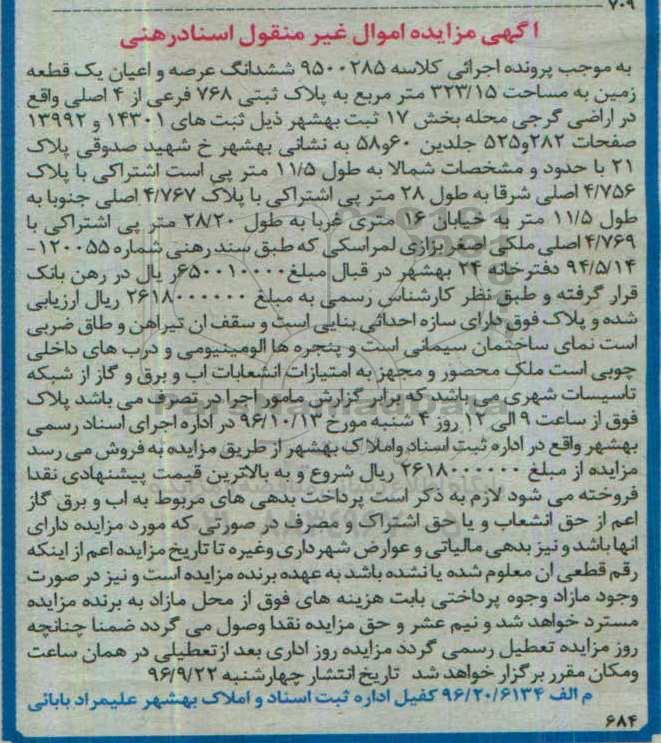 ۷۰۹
آگهی مزایده اموال غیر منقول اسنادرهنی
به موجب پرونده اجرائی کلاسه ۹۵۰۰۲۸۵ ششدانگ عرصه و اعیان یک قطعه
زمین به مساحت ۳۲۳/۱۵ متر مربع به پلاک ثبتی ۷۶۸ فرعی از ۴ اصلی واقع
در اراضی گرجی محله بخش ۱۷ ثبت بهشهر ذیل ثبت های ۱۴۳۰۱ و ۱۳۹۹۲
صفحات ۲۸۲و۵۲۵ جلدین ۶۰و۵۸ به نشانی بهشهر خ شهید صدوقی پلاک
۲۱ با حدود و مشخصات شمالا به طول ۱۱/۵ متر پی است اشتراکی با پلاک
۴/۷۵۶ اصلی شرقا به طول ۲۸ متر پی اشتراکی با پلاک ۴/۷۶۷ اصلی جنوبا به
طول ۱۱/۵ متر به خیابان ۱۶ متری غربا به طول ۲۸/۲۰ متر پی اشتراکی با
۴/۷۶۹ اصلی ملکی اصغر بزازی لمراسکی که طبق سند رهنی شماره ۱۲۰۰۵۵-
۹۴/۵/۱۴ دفترخانه ۲۴ بهشهر در قبال مبلغ ۶۵۰۰۱۰۰۰۰ریال در رهن بانک
قرار گرفته و طبق نظر کارشناس رسمی به مبلغ ۲۶۱۸۰۰۰۰۰۰ ریال ارزیابی
شده و پلاک فوق دارای سازه احداثی بنایی است و سقف ان تیراهن و طاق ضربی
است نمای ساختمان سیمانی است و پنجره ها الومینیومی و درب های داخلی
چوبی است ملک محصور و مجهز به امتیازات انشعابات اب و برق و گاز از شبکه
تاسیسات شهری می باشد که برابر گزارش مامور اجرا در تصرف می باشد پلاک
فوق از ساعت ۹ الی ۱۲ روز ۴ شنبه مورخ ۹۶/۱۰/۱۳ در اداره اجرای اسناد رسمی
بهشهر واقع در اداره ثبت اسناد واملاک بهشهر از طریق مزایده به فروش می رسد
مزایده از مبلغ ۲۶۱۸۰۰۰۰۰۰ ریال شروع و به بالاترین قیمت پیشنهادی نقدا
فروخته می شود لازم به ذکر است پرداخت بدهی های مربوط به اب و برق گاز
اعم از حق انشعاب و یا حق اشتراک و مصرف در صورتی که مورد مزایده دارای
انها باشد و نیز بدهی مالیاتی و عوارض شهرداری وغیره تا تاریخ مزایده اعم از اینکه
رقم قطعی ان معلوم شده یا نشده باشد به عهده برنده مزایده است و نیز در صورت
وجود مازاد وجوه پرداختی بابت هزینه های فوق از محل مازاد به برنده مزایده
مسترد خواهد شد و نیم عشر و حق مزایده نقدا وصول می گردد ضمنا چنانچه
روز مزایده تعطیل رسمی گردد مزایده روز اداری بعد ازتعطیلی در همان ساعت
ومکان مقرر برگزار خواهد شد تاریخ انتشار چهارشنبه ۹۶/۹/۲۲
م الف ۹۶/۲۰/۶۱۳۴ کفیل اداره ثبت اسناد و املاک بهشهر علیمراد بابائی
۶۸۴